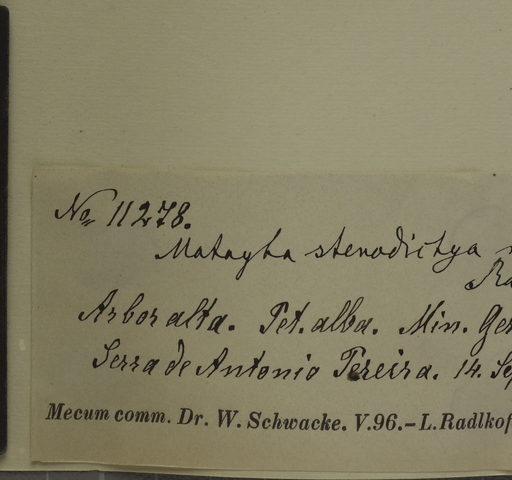 No. 11278.
Matayba stenodictya
Ra
Arbor alta. Pet. alba. Min. Ger
Serra de Antonio Pereira. 14. Sep
Mecum comm. Dr. W. Schwacke. V.96.–L. Radlkof